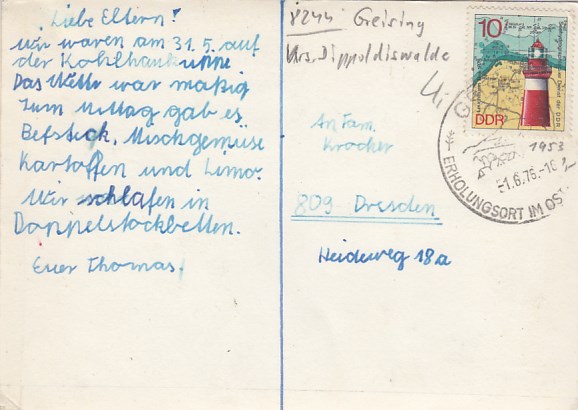 Liebe Eltern!
wir waren am 31.5. auf
der Kohlhaukuppe
Das Wettr war mäßig
Zum Mittag gab es
Befsteck, Mischgemüse
Kartoffen und Limo.
Wir schlafen in
Doppelstockbetten.
Euer Thomas.
8244 Geising
Krs. Dippoldiswalde
An Fam.
Krocker
809 Dresden
Heideweg 18a
10
DDR
1953
-1.6.76.-16
ERHOLUNGSORT IM OST